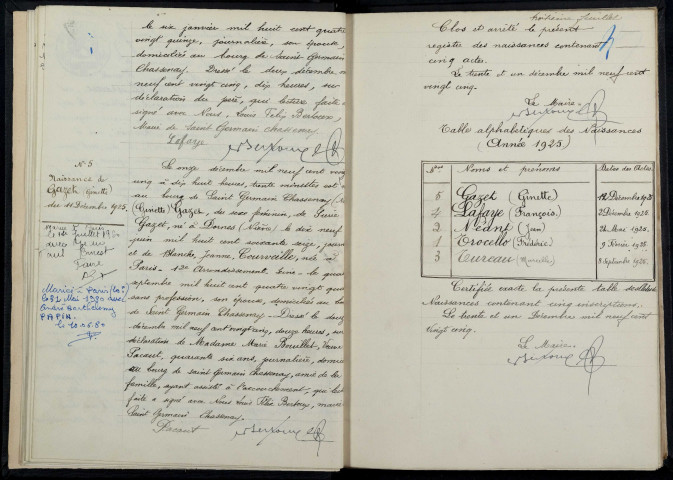 le six janvier mil huit cent quatre
vingt quinze, journalière, son épouse,
domiciliés au bourg de Saint Germain
Chassenay. Dressé le deux décembre
neuf cent vingt cinq, dix heures, sur
déclaration du père, qui lecture faite a
signé avec Nous, Louis Felix
Maire de Saint Germain Chassenay
Lafaye
N° 5
Naissance de
Gazet (Ginette)
du 11 Décembre 1925.
Marié à Paris
le Juillet
avec
Marié à Paris
le 31 Mai 1980 avec
André Barthélemy
PAPIN
le 10.6.80
Le onze décembre mil neuf cent vingt
cinq à dix huit heures, trente minutes est
au bourg de Saint Germain Chassenay
(Ginette) Gazet, de sexe féminin, de
Gazet, né à Dornes (Nièvre) le dix neuf
juin mil huit cent soixante seize, journalier
et de Blanche, Jeanne, Courveille, née
Paris - 12e Arrondissement Seine - le quatre
septembre mil huit cent quatre vingt
sans profession, son épouse, domiciliés au
de Saint Germain Chassenay - Dressé le douze
décembre mil neuf cent vingt cinq, douze heures, sur
déclaration de Madame Marie Veuve
Pacaut, quarante six ans, journalière,
au bourg de Saint Germain Chassenay, amie de la
famille, ayant assisté à l'accouchement, qui lecture
faite a signé avec Nous Louis Félix maire
Saint Germain Chassenay.
Pacaut
troisième feuillet
Clos et arrêté le présent
registre des naissances contenant
cinq actes.
Le trente et un décembre mil neuf cent
vingt cinq.
Le Maire
Table alphabétique des Naissances
(Année 1925)
Nos Noms et prénoms Dates des Actes
5 Gazet (Ginette) 12 Décembre 1925
4 Lafaye (François) 2 Décembre 1925
2 Méant (Jean) 24 Mai 1925.
1 Trocello (Frédéric) 9 Février 1925.
3 Tureau (Marcelle) 9 Septembre 1925.
Certifiée exacte la présente table
Naissances contenant cinq inscriptions.
Le trente et un Décembre mil neuf cent
vingt cinq.
Le Maire